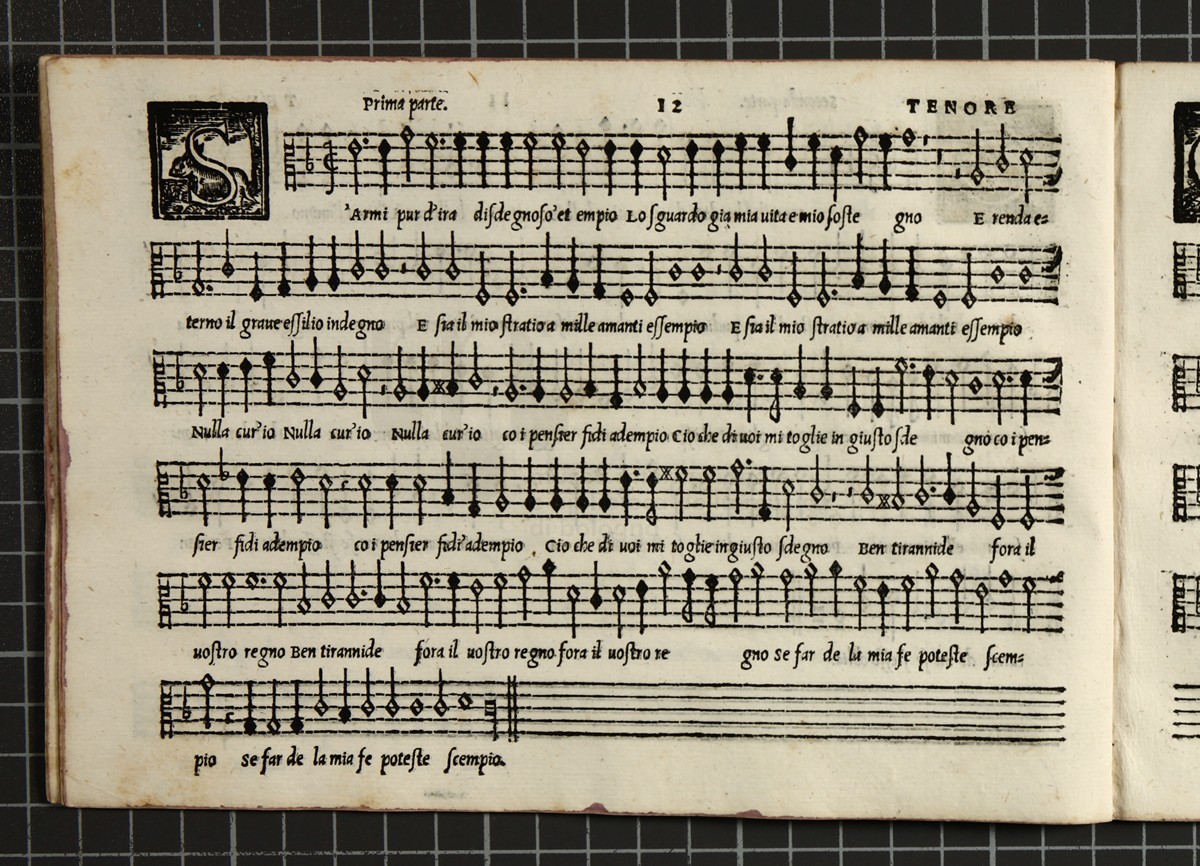 Prima parte. 12 TENORE
S'Armi pur d'ira disdegnoso et empio Lo sguardo gia mia uita e mio soste gno E renda e=
terno il graue essilio indegno E sia il mio stratio a mille amanti essempio E sia il mio stratio a mille amanti essempio
Nulla cur'io Nulla cur'io Nulla cur'io co i pensier fidi adempio Cio che di uoi mi toglie in giusto sde gno co i pen=
sier fidi adempio co i pensier fidi adempio Cio che di uoi mi toglie ingiusto sdegno Ben tirannide fora il
uostro regno Ben tirannide fora il uostro regno fora il uostro re gno Se far de la mia fe poteste scem=
pio Se far de la mia fe poteste scempio.